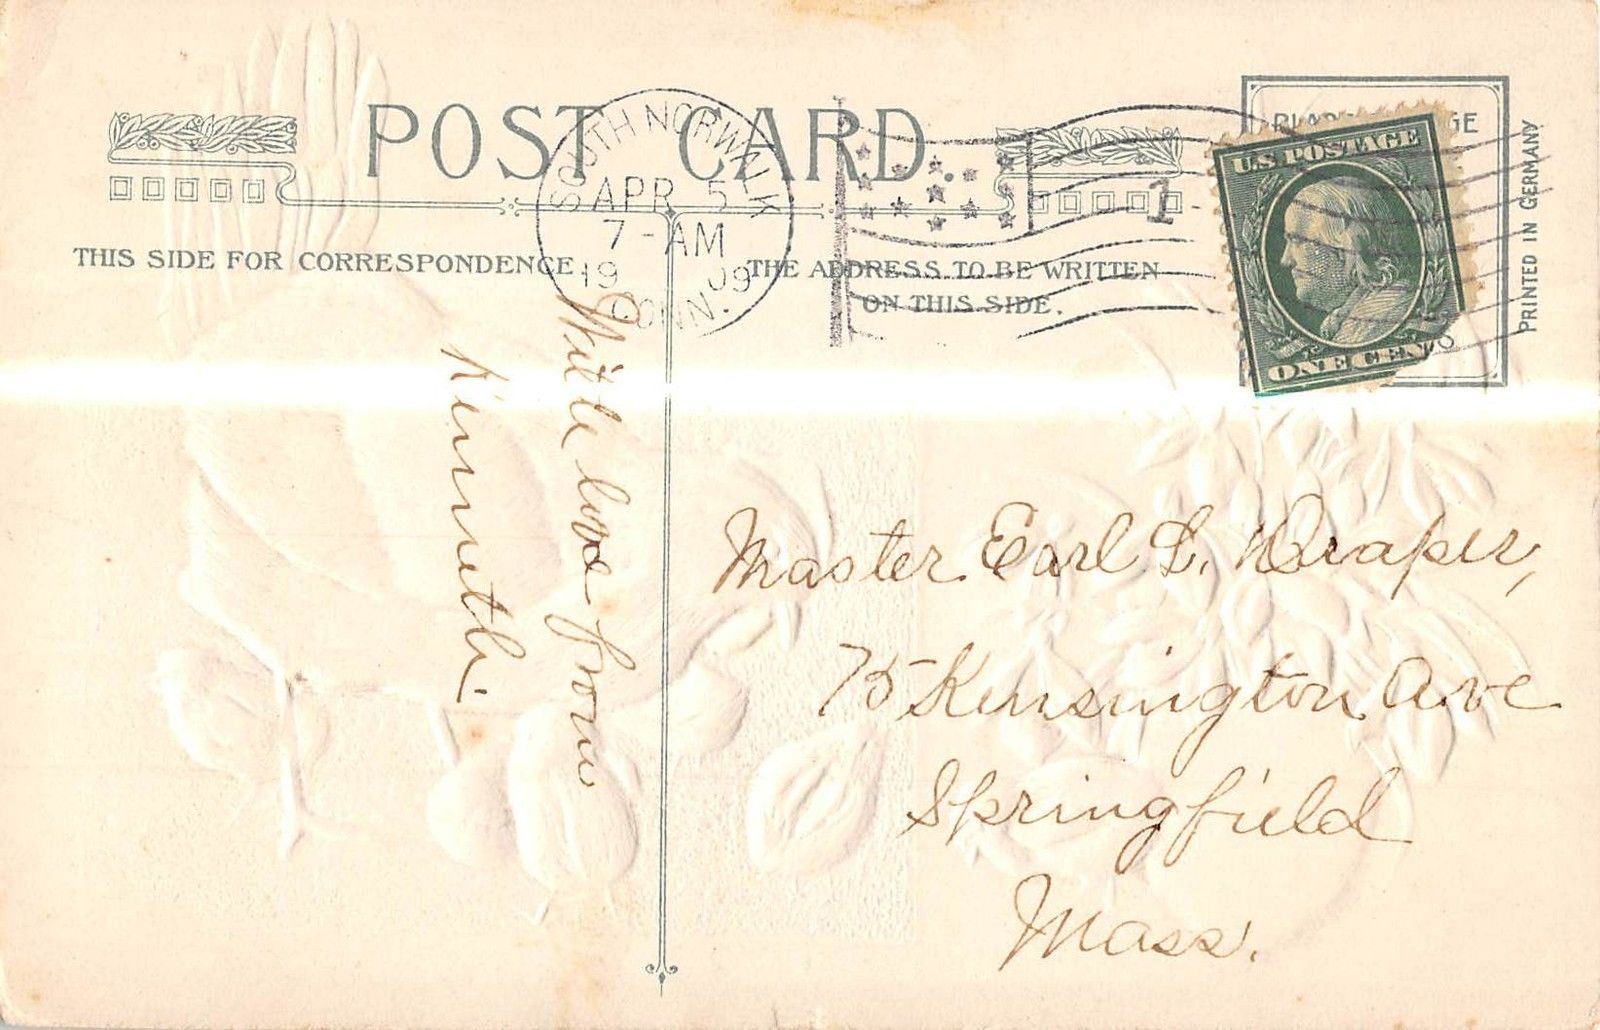 POST CARD.
THIS SIDE FOR CORRESPONDENCE
THE ADDRESS TO BE WRITTEN
ON THIS SIDE.
SOUTH NORWALK
APR 5
7-AM
1909
CONN.
1
U.S. POSTAGE
ONE CENT
PRINTED IN GERMANY
With love from
Kenneth.
Master Earl L. Draper,
75 Kensington Ave
Springfield
Mass.